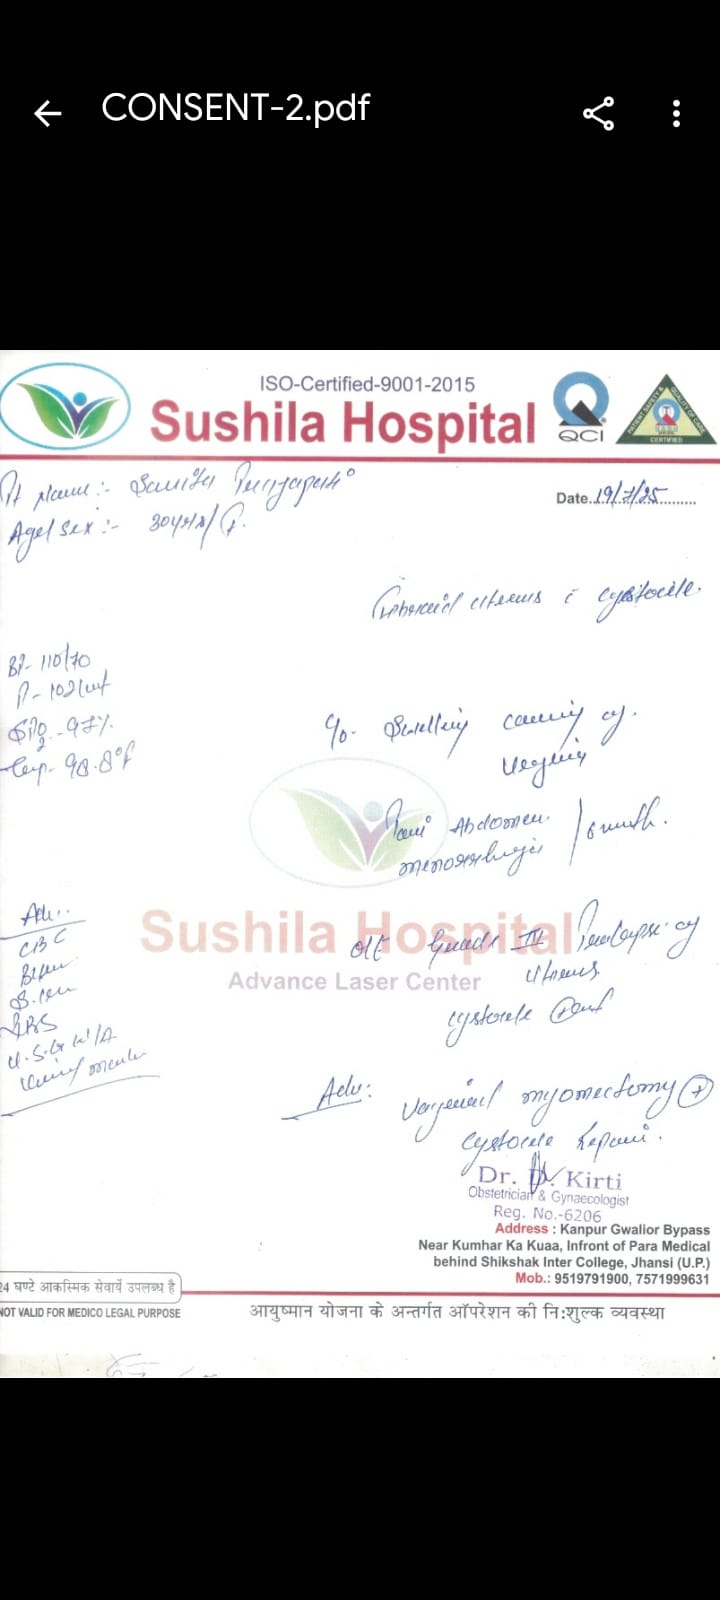 CONSENT-2.pdf
ISO-Certified-9001-2015
Sushila Hospital
QCI
PATIENT SAFETY & QUALITY OF CARE
CERTIFIED
Pt Name:-
Date..19/7/25..........
Age/Sex:- 30yrs/F.
uterus c cystocele.
BP- 110/70
P- 102/mt
SPO2 - 97%
Temp- 98.8°f
c/o- Swelling coming of
vagina
Pain Abdomen
menorrhagia
/ 6 month.
Adv:.
CBC
RBS
U.S.G W/A
Sushila Hospital
Advance Laser Center
O/E Grade III Prolapse of
uterus
cystocele
Adv: Vaginal myomectomy +
cystocele Repair.
Dr. Kirti
Obstetrician & Gynaecologist
Reg. No.-6206
Address : Kanpur Gwalior Bypass
Near Kumhar Ka Kuaa, Infront of Para Medical
behind Shikshak Inter College, Jhansi (U.P.)
Mob.: 9519791900, 7571999631
24 घण्टे आकस्मिक सेवायें उपलब्ध है
NOT VALID FOR MEDICO LEGAL PURPOSE
आयुष्मान योजना के अन्तर्गत ऑपरेशन की नि:शुल्क व्यवस्था